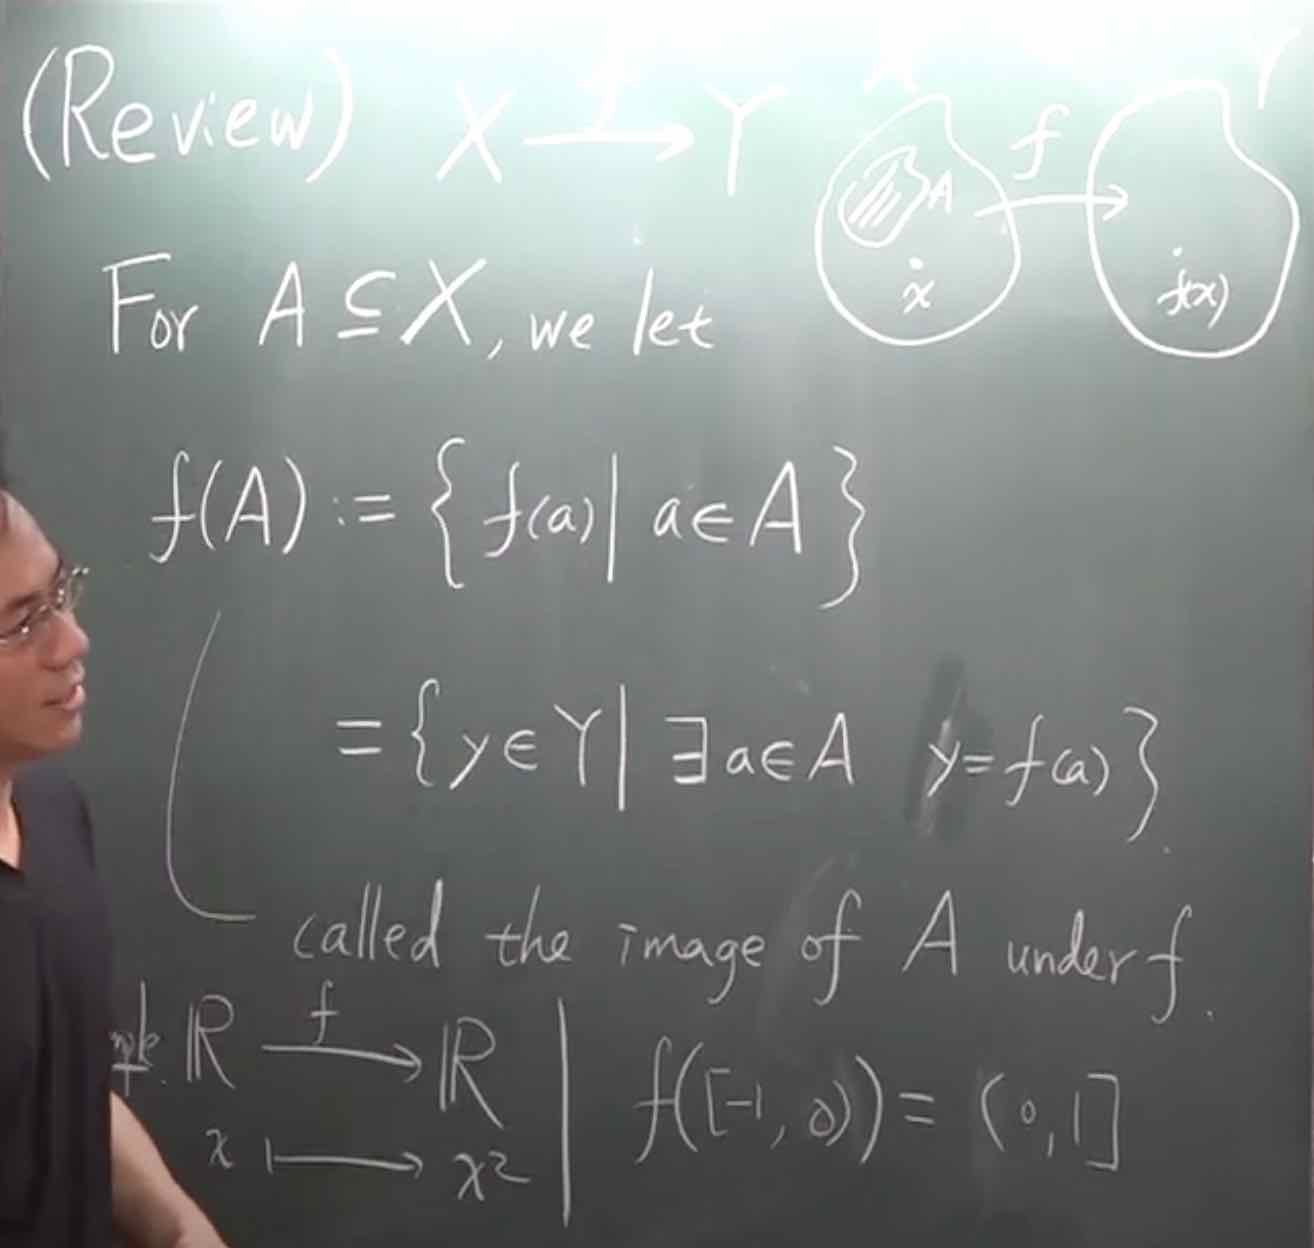 (Review) X → Y
f
A
x
f(x)
Y
For A ⊆ X, we let
f(A) := { f(a) | a ∈ A }
= { y ∈ Y | ∃ a ∈ A y = f(a) }.
called the image of A under f.
ℝ f→ ℝ | f([-1, 0)) = (0, 1]
x ↦ x²